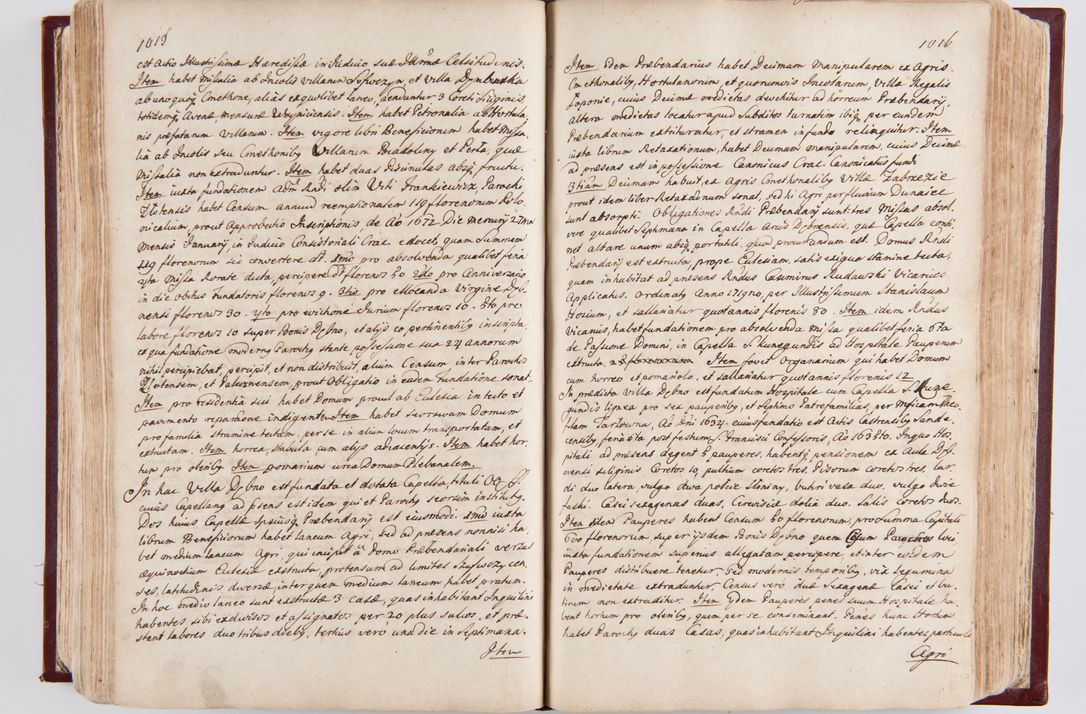 1015
est actio Illustrissimæ Hæredissæ in Judicio suæ Illmæ Celsitudinis.
Item habet missalia ab Incolis villarum et villa Dymbnaska
ab unoquoq Cmethone, alias ex quolibet laneo, veniuntur 3 Coreti siliginis
totidemq Avenæ mensuræ Item habet Petronalia ab Hortula,
nis præfatarum villarum. Item vigore libri Beneficiorum habet Missa,
lia ab Incolis seu Cmethonibq Villarum et Perla, quæ
missalia non extraduntur. Item habet duas Piscinulas absq fructu.
Item iuxta fundationem adm Rndi olim Urbi Frankiewicz Parochi
Zlotensis habet Censum annuú reemptionalem 119 florenorum Polo,
nicalium, prout Approbatio Inscriptionis de Ao 1672 Die mercurij 27
mensis Januarij in Judicio Consistoriali Crac. edocet quam Summam
119 florenorum sic convertere dt. 1mo pro absolvenda qualibet feria
Missa Rorate dicta, percipere dt florenos 50 2do pro Anniversario
in die obitus Fundatoris florenos 9. 3tio pro elocanda Virgine Dyb,
nensi florenos 30. 4to pro florenos 10. 5to pro
labore florenos 10 super Bonis Dębno, et alijs eo pertinentibq inscripta,
ex qua fundatione modernq Parochq stante possessione sua 24 annorum
nihil percipiebat, percipit, et non distribuit, alium Censum inter Parochos
Zlotensem, et prout Obligatio in eadem fundatione sonat.
Item pro residentia sui habet Domum prout ab Ecclesia in tecto et
pavimento reparatione indigentem Item habet seorsivam Domum
pro familia stramine tectam, per se in alium locum transportatam, et
exstructam. Item horrea, stabula cum alijs adiacentijs. Item habet hor,
tum pro oleribq Item pomarium circa Domum Plebanalem.
In hac Villa Dębno est fundata et dotata Capella, tituli OO SS.
cuius Capellanq ad psens est idem qui et Parochq seorsim institutq.
Dos huius Capellæ ipsiusq Præbendarij est eiusmodi. 1mo iuxta
librum Beneficiorum habet laneum Agri, sed ad præsens nonnisi ha,
bet medium laneum Agri, qui incipit a Domo Præbendariali versus
æquinoctium Ecclesiæ exstructa, protensum ad limites Szufwczy cen,
ses, latitudinis diversæ, inter quem medium laneum habet pratum.
In hoc medio laneo sunt exstructæ 3 casæ, quas inhabitant Inquilini
habentes sibi exdivisos et assignatos per 20 plus sulcos, et præ,
stant labores duo tribus diebq, tertius vero una die in septimana.
Item
1016
Item Idem Præbendarius habet Decimam manipularem ex Agris
Cmethonalibq, Hortulanorum, et quorumvis Incolarum, Villæ Regalis
Łoponie, cuius Decimæ medietas devehitur ad horreum Præbendarij,
altera medietas locatur apud Subditos turnatim ibiq per eundem
Præbendarium extrituratur, et stramen in fundo relinquitur. Item
iuxta librum Retaxationum, habet Decimam manipularem, cuius Decimæ
ad præsens est in possessione Canonicus Crac. Canonicatus fundi
3tiam Decimam habuit, ex Agris Cmethonalibq Villæ Zabrzezie
prout idem liber Retaxationum sonat, sed hi Agri per fluvium Dunaiec
sunt absorpti. Obligationes Rndi Præbendarij sunt tres Missas absol,
vere qualibet Septimana in Capella Arcis Dębnensis, quæ Capella conti,
net altare unum absq portatili, quod procurandum est. Domus Rndi
Præbendarij est exstructa, prope Ecclesiam, satis exigua stamine tecta,
quam inhabitat ad præsens Rndus Casimirus Rudawski Vicarius
Applicatus. Ordinatq Anno 1719no, per Illustrissimum Stanislaum
Hosium, et sallariatur quotannis florenis 80. Item idem Rndus
Vicarius, habet fundationem pro absolvenda missa qualibet feria 6ta
de Passione Domini, in Capella S. Kunegundis ad Hospitale Pauperum
extructa. Item fovet Organarium qui habet Domum
cum horreo et pomariolo, et sallariatur quotannis florenis 12.
In prædicta Villa Dębno est fundatum Hospitale cum Capella S. Kune
gundis lignea pro sex pauperibq, et septimo Patrefamilias, per Mficam
flam Tarlowna, Ao Dni 1634. cuius fundatio est Actis Castrensibq Sande,
censibq feria 6ta post festum S. Francisci Confessoris, Ao 1638vo. In quo Hos,
pitali ad præsens degent 6 pauperes, habentq pensionem ex Aula Dęb,
nensi siliginis Coretos 10, pultium coretos tres, Pisorum coretos tres lar,
di duo latera, vulgo dwa połcie słoniny, butiri vasa duo, vulgo dwie
faski. Casei sexagenas duas, Cerevisiæ dolia duo. salis coretos duos.
Item idem Pauperes habent Censum 60 florenorum, pro Summa Capitali
600 florenorum super ijsdem Bonis Dębno quem Censum Parochus loci
iuxta fundationem superius allegatam percipere, et inter eosdem
Pauperes distribuere tenetur, sed modernis temporibq, vix legumina
in medietate extraduntur. Census vero duæ sexagenæ Casei et bu,
tirum non extraditur. Item ijdem Pauperes penes suum Hospitale ha,
bent hortum pro oleribq, quem per se conseminant. Penes hunc Hortum
habet Parochq duas Casas, quas inhabitant Inquilini habentes particulã
Agri